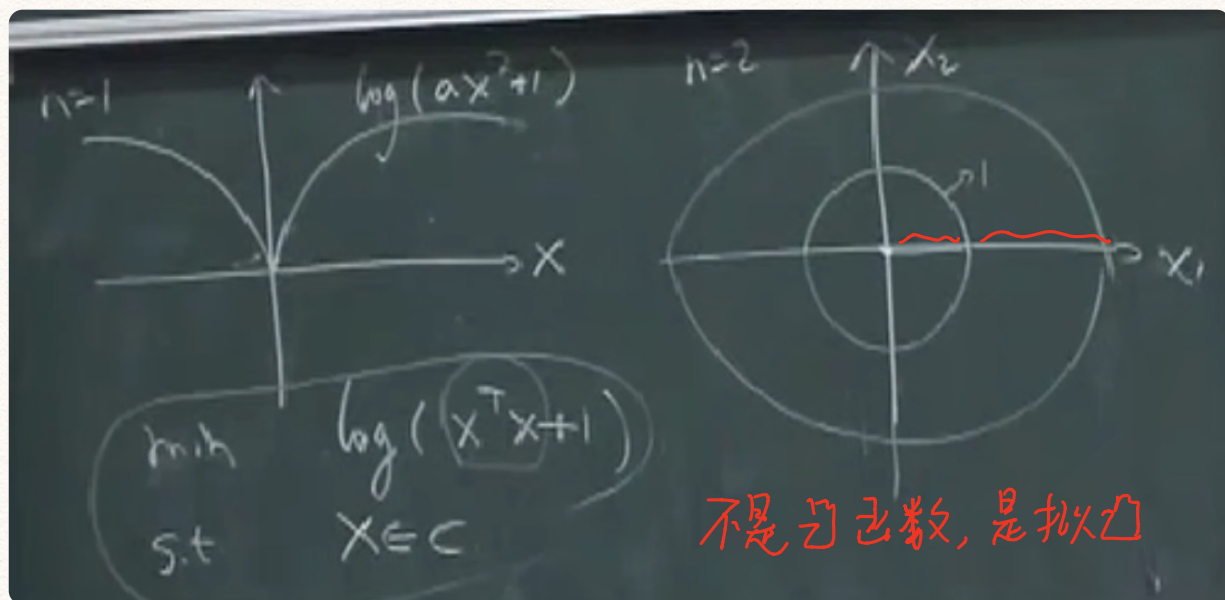 n=1
log(ax²+1)
x
n=2
x₂
1
x₁
min log(xᵀx+1)
s.t x∈C
不是凸函数,是拟凸